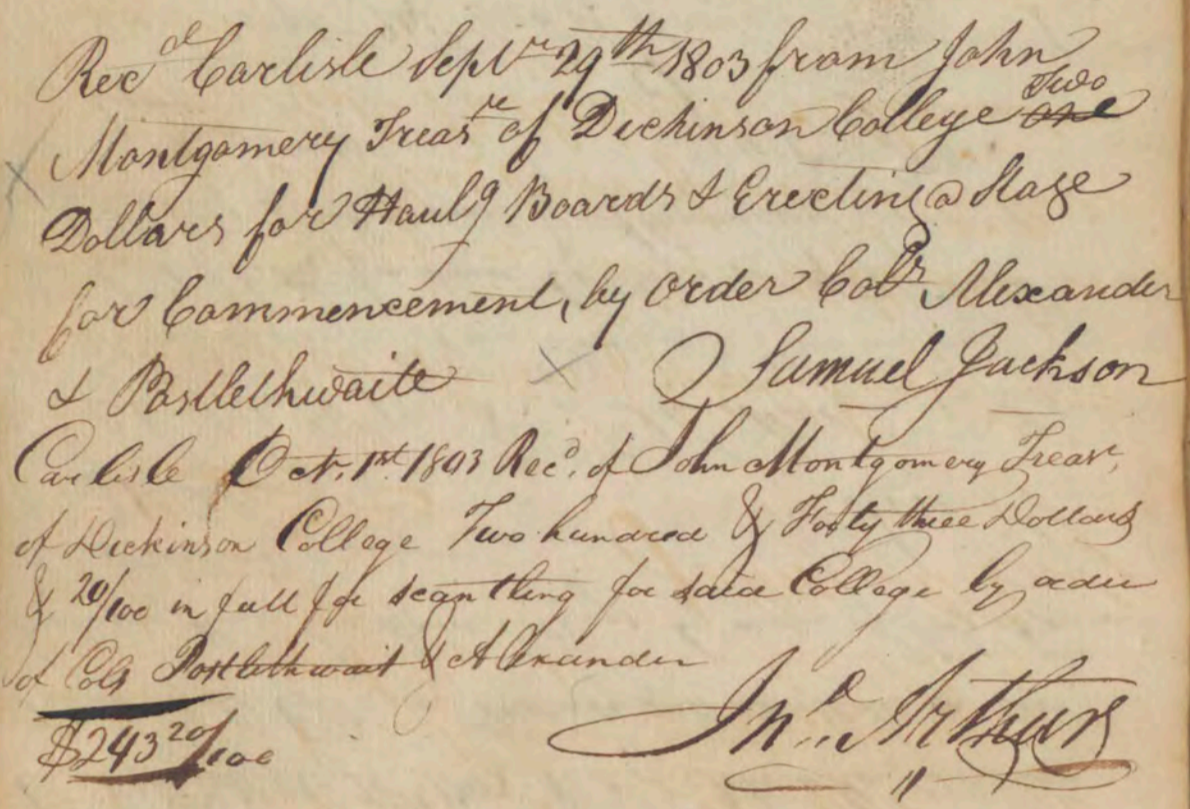 Recd Carlisle Septr 29th 1803 from John
Montgomery Treasre of Dickinson College Two one
Dollars for Haulg Boards & Erecting a Stage
for Commencement, by order Colrs Alexander
& Postlethwaite Samuel Jackson
Carlisle Oct. 1st. 1803 Recd. of John Montgomery Treasr.
of Dickinson College Two hundred & Forty three Dollars
& 20/100 in full for scantling for said College by order
of Cols Postlethwait & Alexander
Jno. Arthurs
$243 20/100